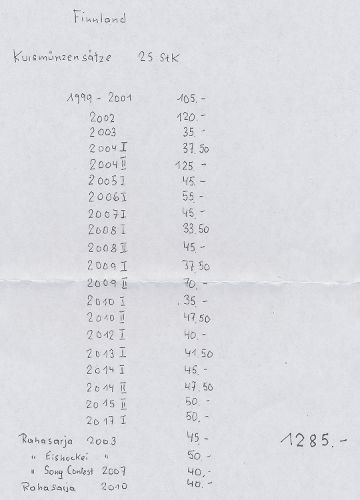 Finnland
Kursmünzensätze 25 Stk
1999 - 2001 105.-
2002 120.-
2003 35.-
2004 I 37.50
2004 II 125.-
2005 I 45.-
2006 I 55.-
2007 I 45.-
2008 I 33.50
2008 II 45.-
2009 I 37.50
2009 II 70.-
2010 I 35.-
2010 II 47.50
2012 I 40.-
2013 I 41.50
2014 I 45.-
2014 II 47.50
2015 II 50.-
2017 I 50.-
Rahasarja 2003 45.- 1285.-
" Eishockei " 50.-
" Song Contest 2007 40.-
Rahasarja 2010 40.-